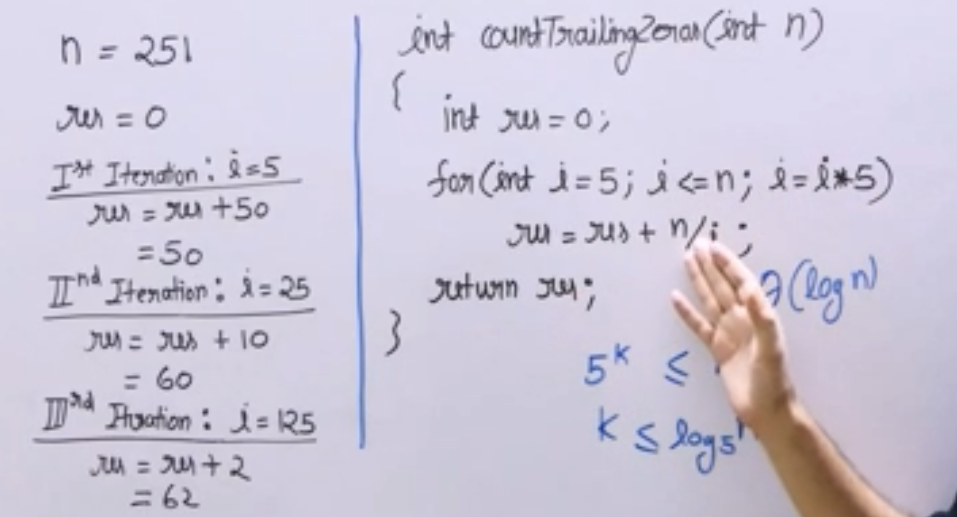 n = 251
res = 0
Ist Iteration : i=5
res = res +50
=50
IInd Iteration : i = 25
res = res + 10
= 60
IIIrd Iteration : i = 125
res = res + 2
= 62
int countTrailingZeros(int n)
{
int res = 0;
for(int i=5; i<=n; i=i*5)
res = res + n/i ;
return res;
}
(log n)
5^k ≤
k ≤ log5